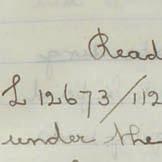 Read
L 12673/112
under the